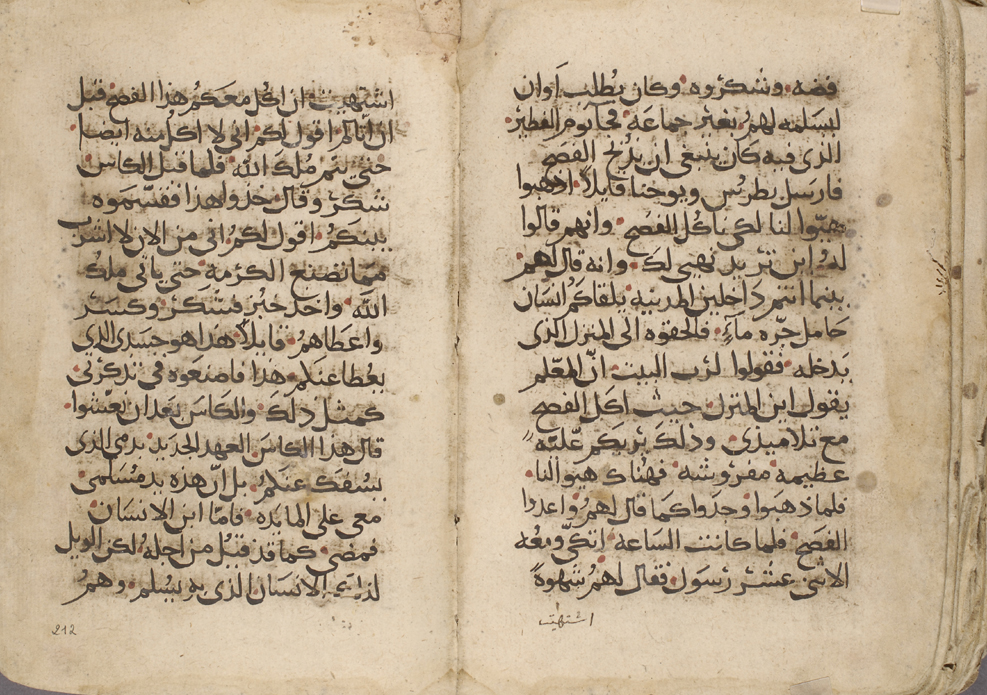 فضه وشكروه وكان يطلب اوان
ليسلمه لهم بغير جماعة فجا يوم الفطير
الذي فيه كان ينبغي ان يذبح الفصح
فارسل بطرس ويوحنا قايلا اذهبوا
هيّوا لنا لكي ناكل الفصح وانهم قالوا
له اين تريد نهيي لك وانه قال لهم
بينما انتم داخلين المدينه يلقاكم انسان
حامل جرّه مآءٍ فالحقوه الى المنزل الذي
يدخله فقولوا لرب البيت انّ المعّلم
يقول اين المنزل حيث اكل الفصح
مع تلاميذي وذلك يريكم علّيّه
عظيمه مفروشه فهناك هيوا لنا
فلما ذهبوا وجدوا كما قال لهم واعدوا
الفصح فلما كانت الساعة اتكى ومعه
الاثني عشر رسول فقال لهم شهوةً
اشتهيت
اشتهيت ان اكل معكم هذا الفصح قبل
ان اتالم اقول لكم اني لا اكل منه ايضا
حتي يتم ملك الله فلما قبل الكاس
شكر وقال خذوا هذا فقسّموه
بينكم اقول لكم اني من الان لا اشرب
مما تصنع الكرمه حتي ياتي ملك
الله واخذ خبز فشكر وكسر
واعطاهم قايلاً هذا هو جسدي الذي
يعطا عنكم هذا فاصنعوه في تذكرتي
كمثل ذلك والكاس بعد ان تعشوا
قال هذا الكاس العهد الجديد بدمي الذي
يسفك عنكم بل انّ هذه يد مسلمي
معي علي المايده فامّا ابن الانسان
فيمضي كما قد قيل من اجله لكن الويل
لذلك الانسان الذي به يسلم وهم
212